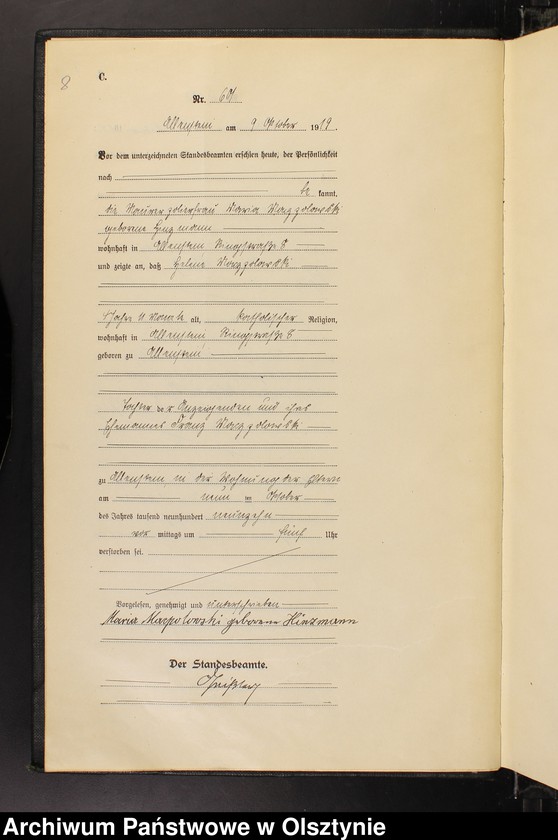 8
C.
Nr. 601
Allenstein am 9 Oktober 1919.
Vor dem unterzeichneten Standesbeamten erschien heute, der Persönlichkeit
nach
be kannt,
die Maurerpolierfrau Maria
geborene Hinzmann
wohnhaft in Allenstein Ringstraße 8
und zeigte an, daß Helene
alt, katholischer Religion,
wohnhaft in Allenstein Ringstraße 8
geboren zu Allenstein
Tochter der Anzeigenden und ihres
Ehemannes Franz
zu Allenstein, in der Wohnung der Eltern
am neun ten Oktober
des Jahres tausend neunhundert neunzehn
vor mittags um fünf Uhr
verstorben sei.
Vorgelesen, genehmigt und unterschrieben
Maria geborene Hinzmann
Der Standesbeamte.
Archiwum Państwowe w Olsztynie